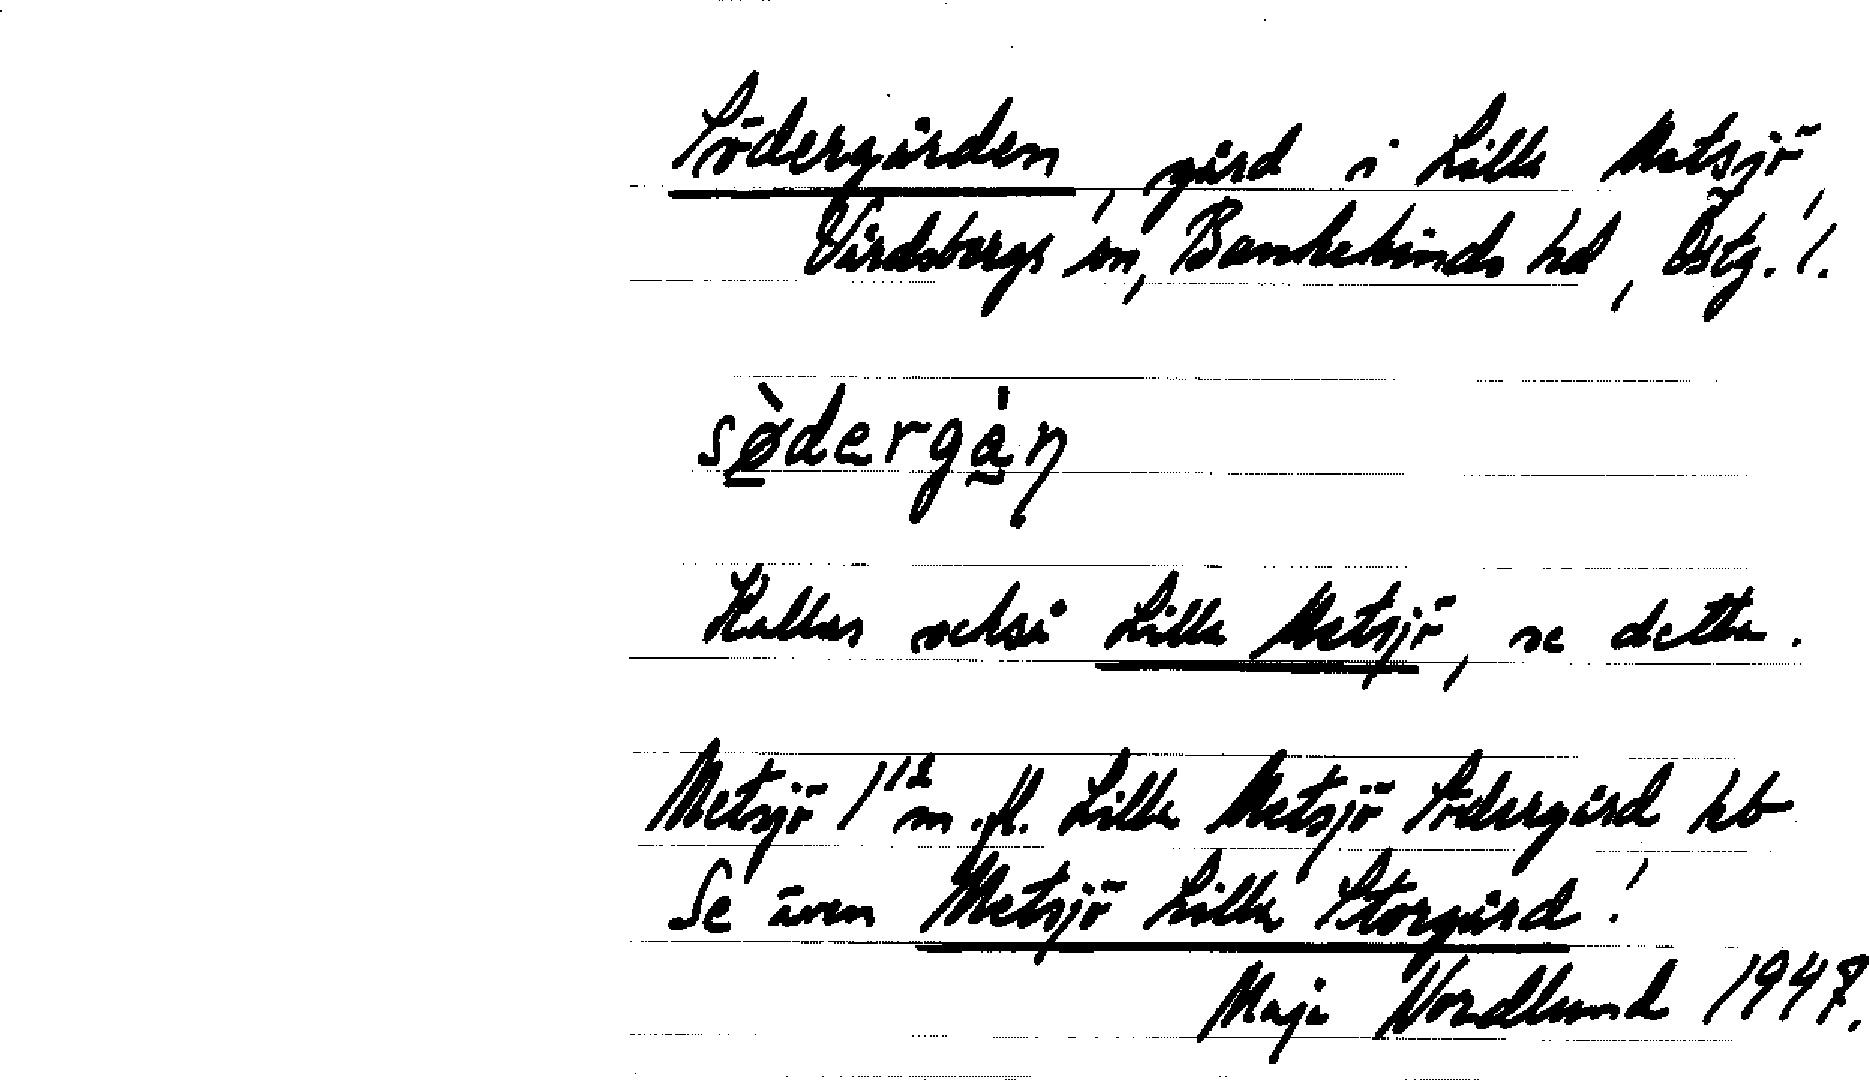 Södergården, gård i Lilla Metsjö,
Vårdsbergs sn, Bankekinds hd, Östg. l.
sødergàn
Kallas också Lilla Metsjö, se detta.
Metsjö 1¹² m.fl. Lilla Metsjö Södergård hb
Se även Metsjö Lilla Storgård!
Maja Nordlund 1947.